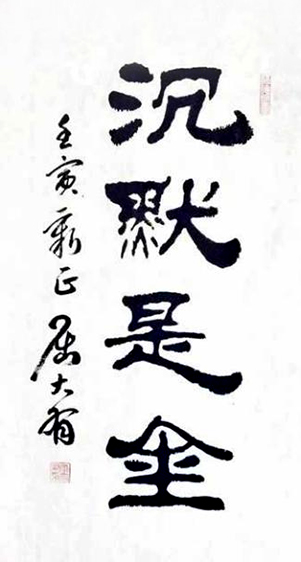 沉默是金
壬寅新正 屈大有